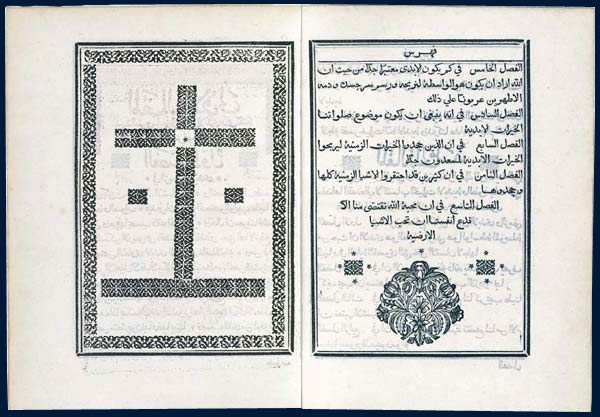 فهرس
الفصل الخامس في كم يكون لابدى معتبرًا جدًّا من حيث ان
الله اراد ان يكون هو الواسطة لتربحه ورسم سر جسده ودمه
الاطهرين عربونًا علي ذلك
الفصل السادس في انه ينبغي ان يكون موضوع صلواتنا
الخيرات الابدية
الفصل السابع في ان الذين جحدوا الخيرات الزمنية ليربحوا
الخيرات الابدية المسعدون جدًّا
الفصل الثامن في ان كثيرين قد احتقروا الاشيا الزمنية كلها
وجحدوها
الفصل التاسع في ان محبة الله تقتضي منا الا
ندع انفسنا ان تحب الاشيا
الارضية
الفصل